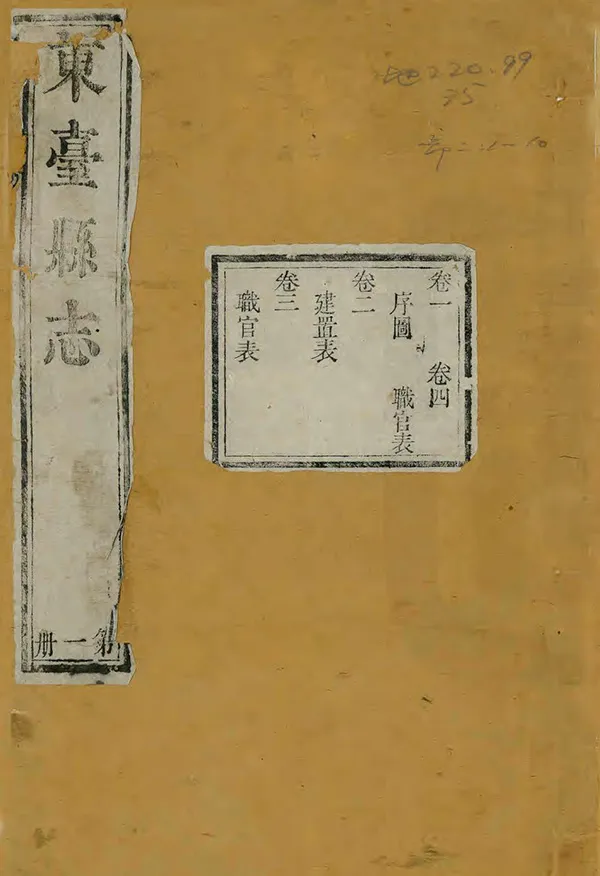 東臺縣志
第一册
卷一
序圖
卷二
建置表
卷三
職官表
卷四
職官表
220.99